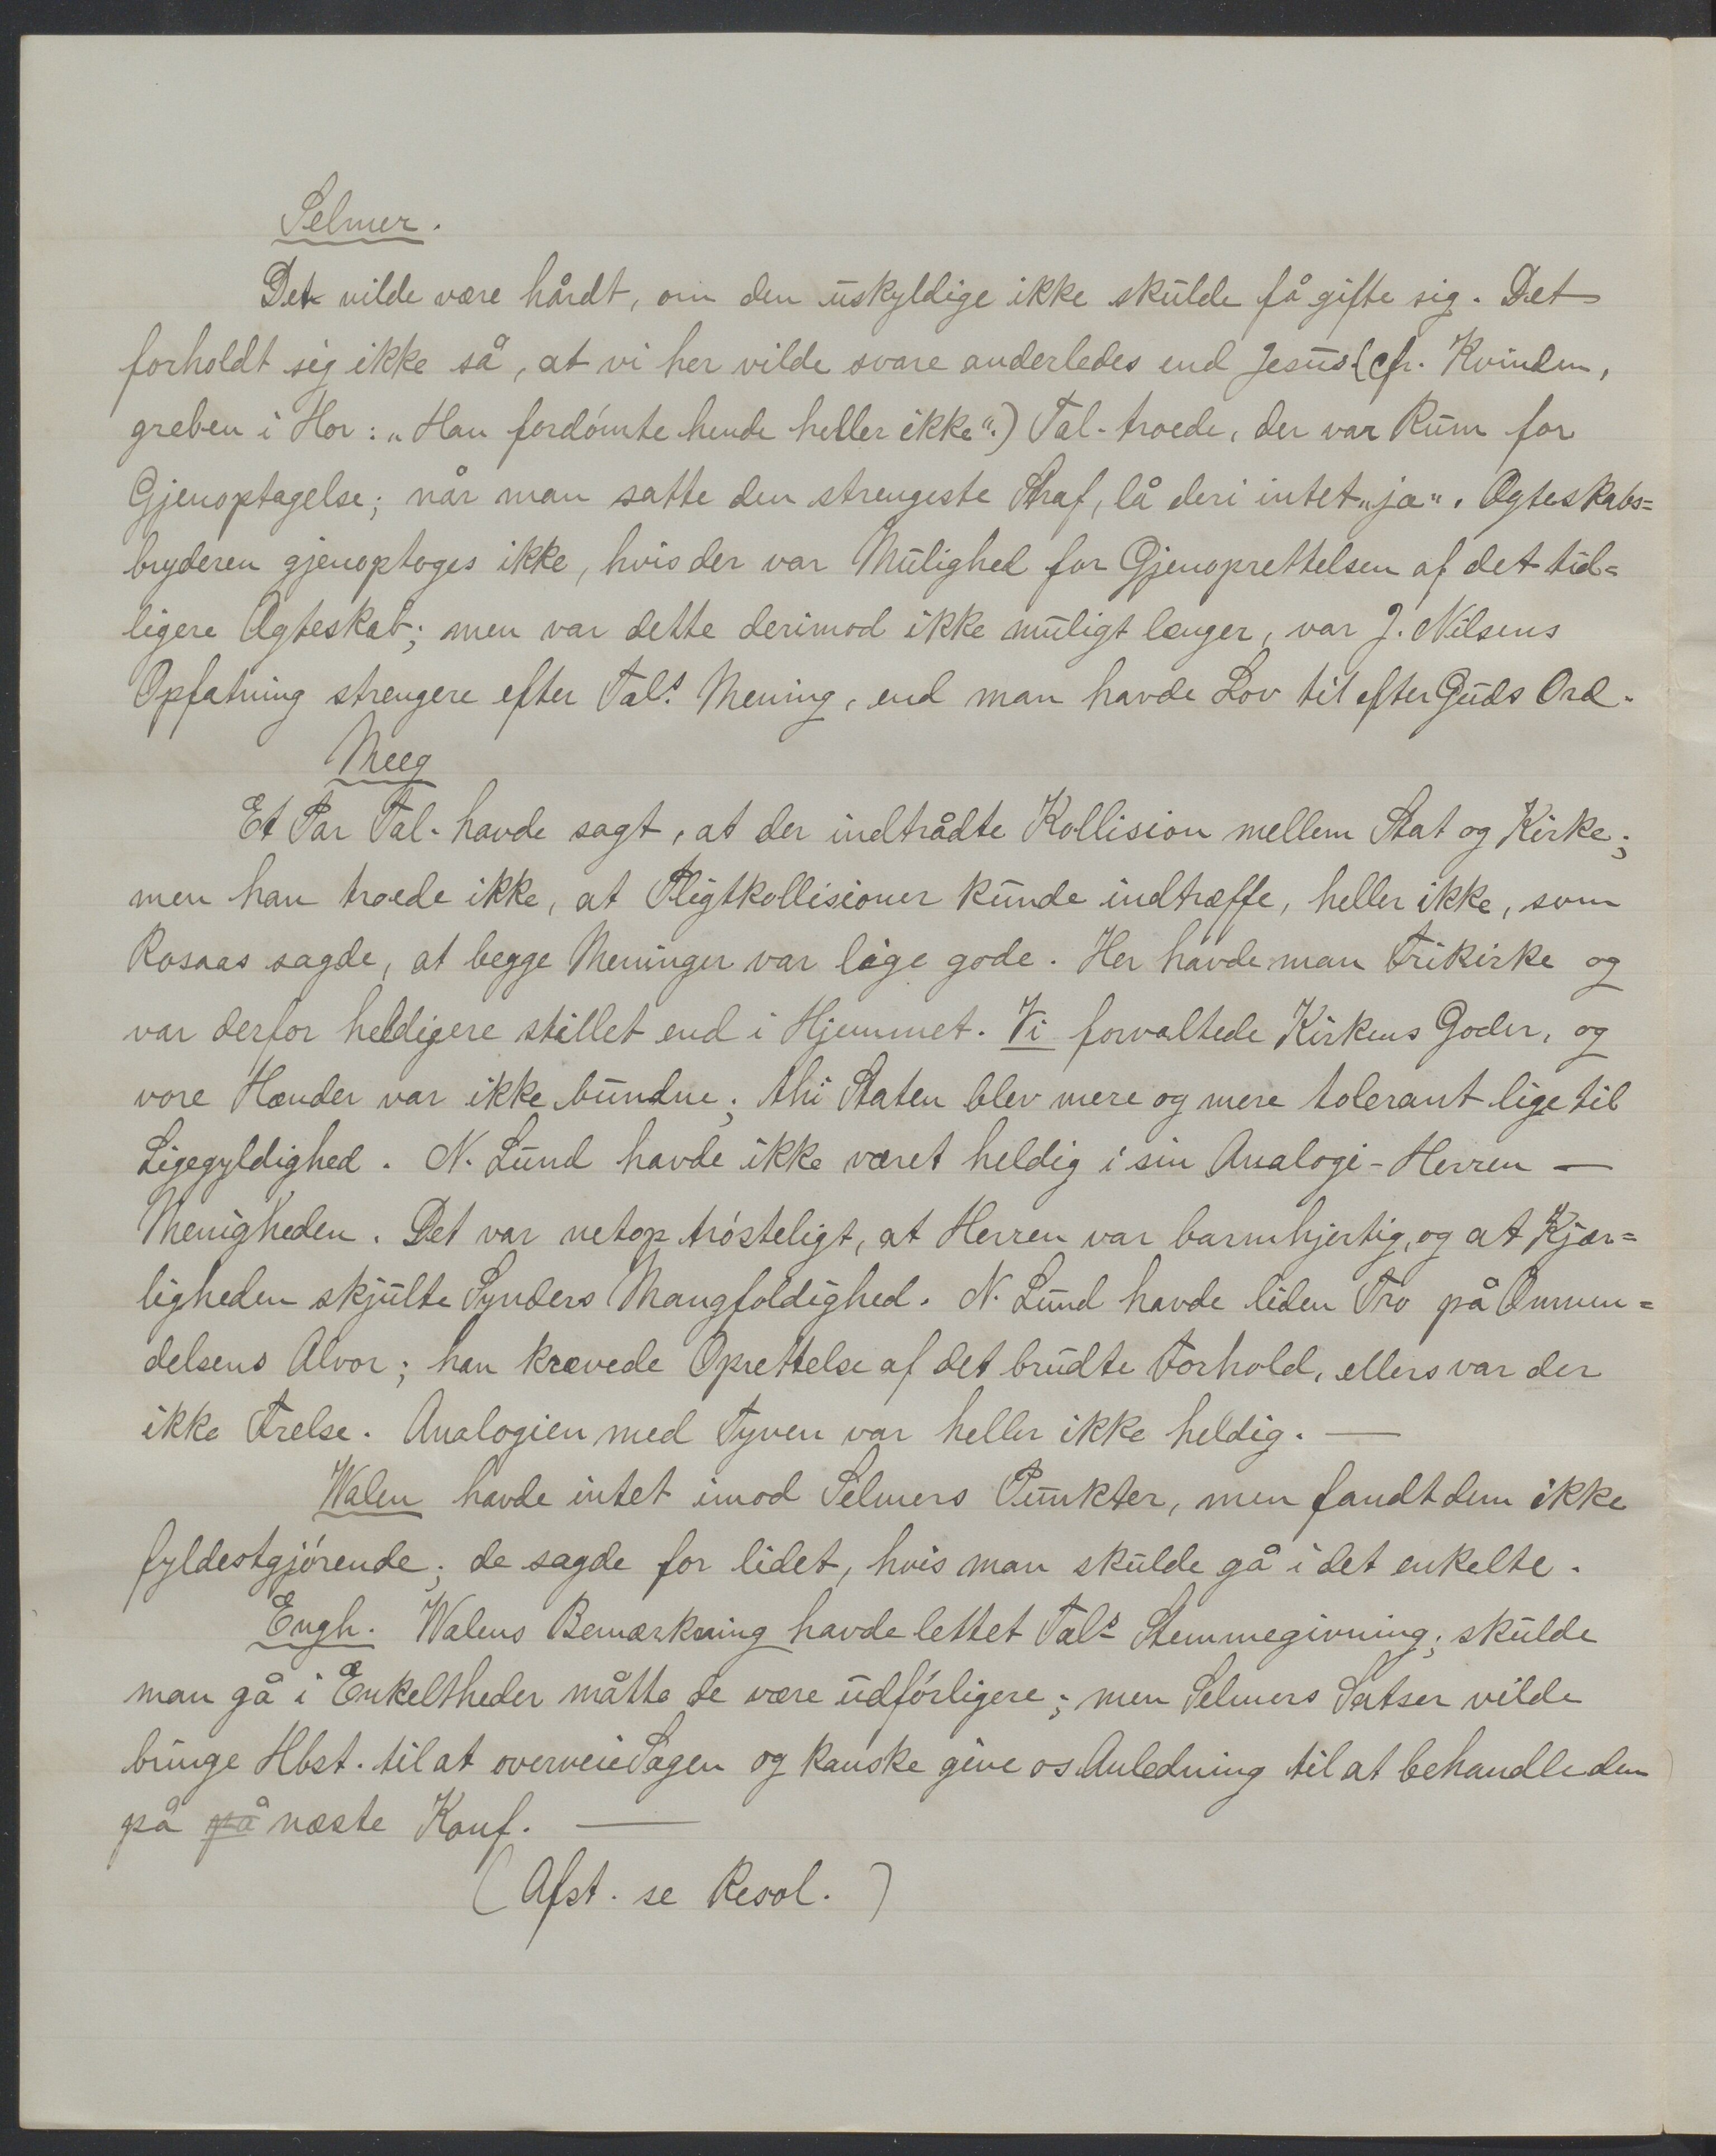 Selmer.
Det vilde være hårdt, om den uskyldige ikke skulde få gifte sig. Det
forholdt sig ikke så, at vi her vilde svare anderledes end Jesus (cfr. Kvinden,
greben i Hor: „Han fordómte hende heller ikke“.) Tal. troede, der var Rum for
Gjenoptagelse; når man satte den strengeste Straf, lå deri intet „ja“. Ægteskabs=
bryderen gjenoptoges ikke, hvis der var Mulighed for Gjenoprettelsen af det tid=
ligere Ægteskab; men var dette derimod ikke muligt længer, var J. Nilsens
Opfatning strengere efter Tal.s Mening, end man havde Lov til efter Guds Ord.
Meeg
Et Par Tal. havde sagt, at der indtrådte Kollision mellem Stat og Kirke;
men han troede ikke, at Pligtkollisioner kunde indtræffe, heller ikke, som
Rosaas sagde, at begge Meninger var lige gode. Her havde man Frikirke og
var derfor heldigere stillet end i Hjemmet. Vi forvaltede Kirkens Goder, og
vore Hænder var ikke bundne; thi Staten blev mere og mere tolerant lige til
Ligegyldighed. N. Lund havde ikke været heldig i sin Analogi - Herren —
Menigheden. Det var netop trósteligt, at Herren var barmhjertig, og at Kjær=
ligheden skjulte Synders Mangfoldighed. N. Lund havde liden Tro på Omven=
delsens Alvor; han krævede Oprettelse af det brudte Forhold, ellers var der
ikke Frelse. Analogien med Tyven var heller ikke heldig. —
Walen havde intet imod Selmers Punkter, men fandt dem ikke
fyldestgjórende; de sagde for lidet, hvis man skulde gå i det enkelte.
Engh. Walens Bemærkning havde lettet Tal.s Stemmegivning; skulde
man gå i Enkeltheder måtte de være udfórligere; men Selmers Satser vilde
bringe Hbst. til at overveie Sagen og kanske give os Anledning til at behandle den
på på næste Konf. —
(Afst. se Resol.)